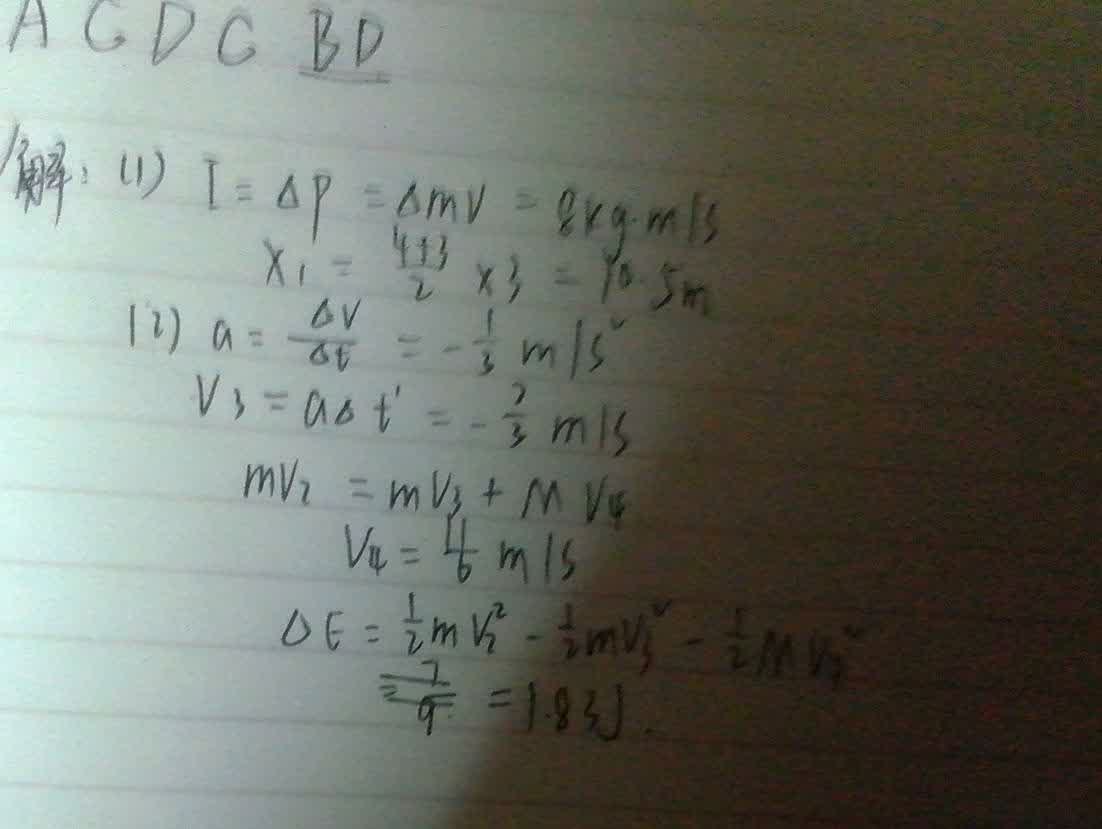 A C D C BD
解:(1) I = Δp = Δmv = 8kg·m/s
X₁ = \frac{4+3}{2} × 3 = 10.5m
(2) a = \frac{Δv}{Δt} = -\frac{1}{3} m/s²
V₃ = aΔt' = -\frac{2}{3} m/s
mv₂ = mv₃ + MV₄
V₄ = \frac{11}{6} m/s
ΔE = \frac{1}{2}mv₂² - \frac{1}{2}mv₃² - \frac{1}{2}Mv₃²
= 1.83J.